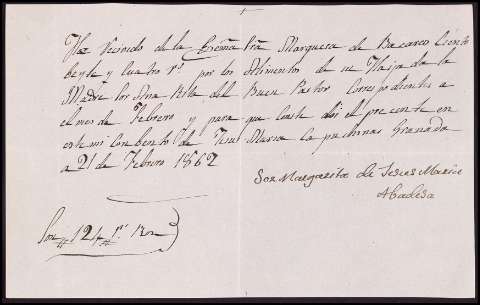 He Recivido de la Exma Sra Marquesa de Bacares Ciento
beyte y Cuatro rs por los Alimentos de su Haija de la
Madre Sor Ana Bella del Buen Pastor Correspondientes a
el mes de Febrero y para que Coste doi el precente en
este mi Conbento de Jesus Maria Capuchinas Granada
a 21 de Febrero 1862
Sor Margarita de Jesus Maria
Abadesa
Son # 124 # rs Ron